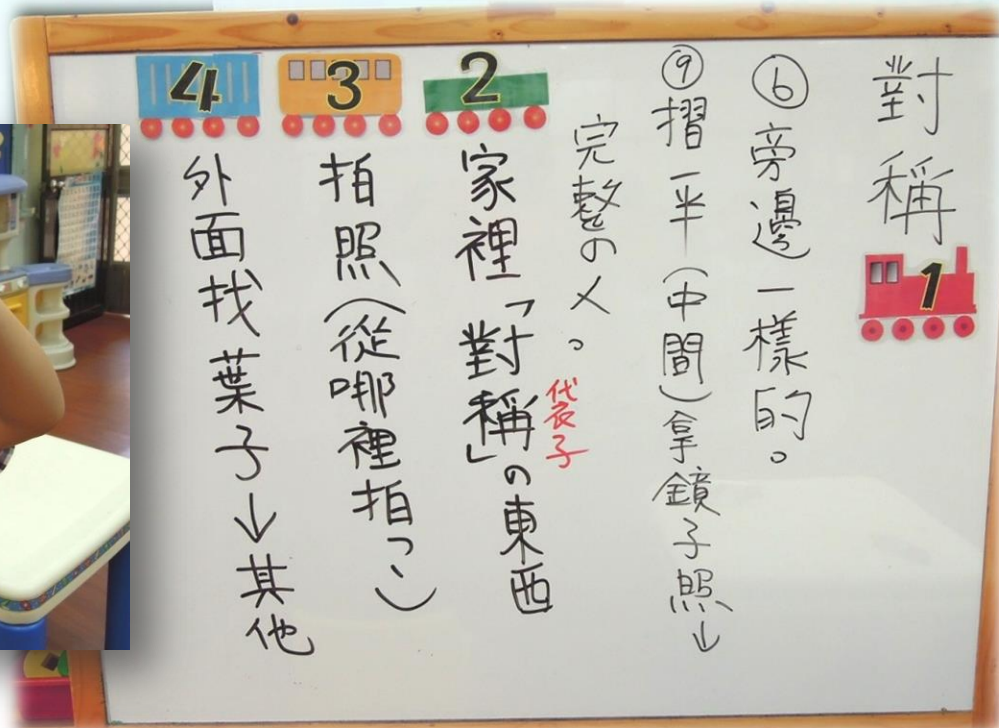 對稱
1
⑥旁邊一樣的。
⑨摺一半(中間)拿鏡子照↓
完整の人。
2
家裡「對稱」の東西
袋子
3
拍照(從哪裡拍?)
4
外面找葉子↓其他